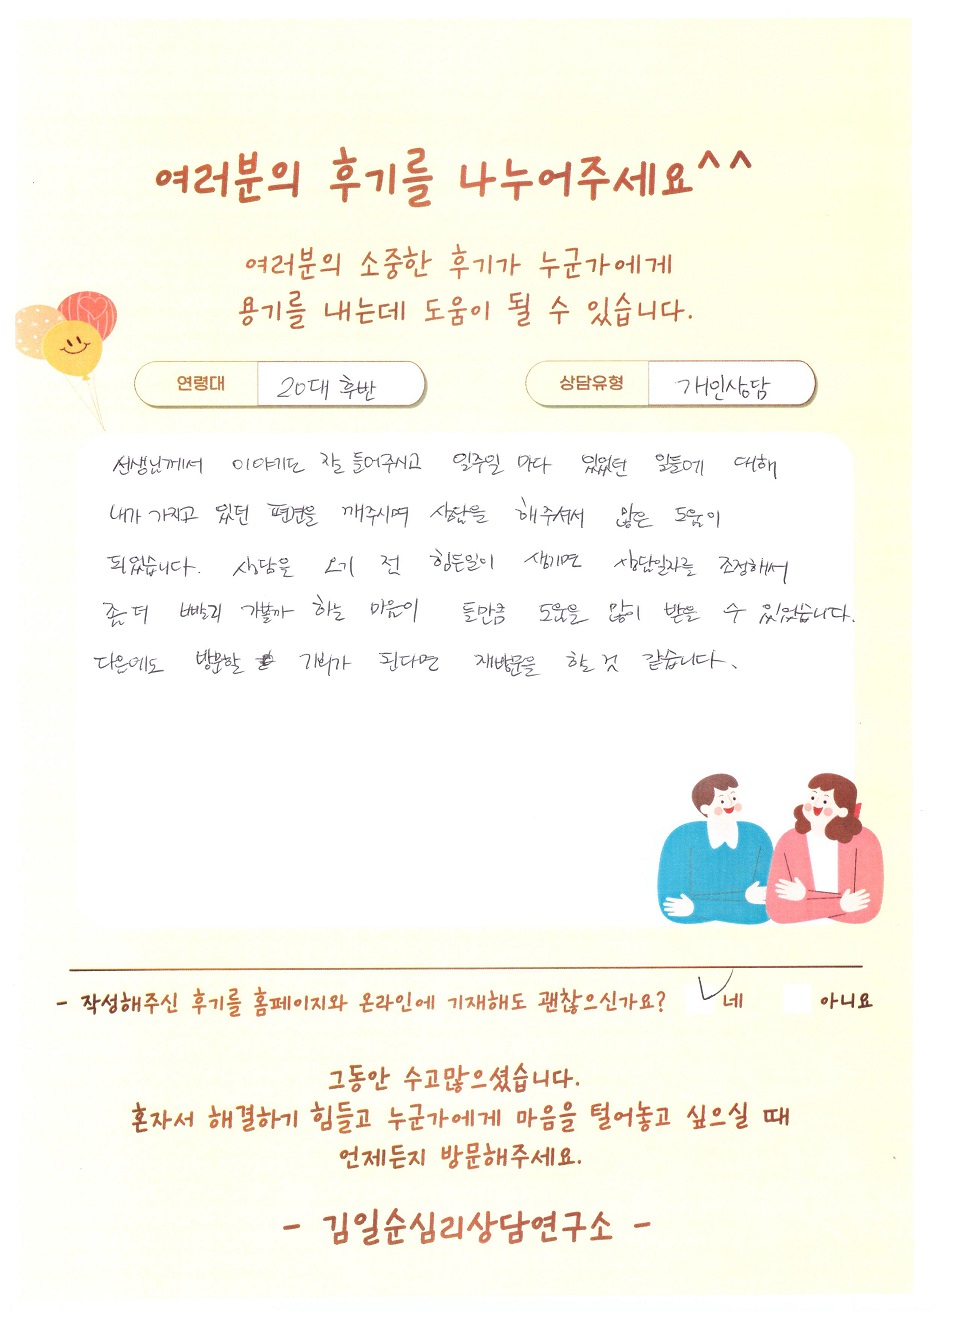 여러분의 후기를 나누어주세요^^
여러분의 소중한 후기가 누군가에게
용기를 내는데 도움이 될 수 있습니다.
연령대 20대 후반
상담유형 개인상담
선생님께서 이야기도 잘 들어주시고 일주일 마다 있었던 일들에 대해
내가 가지고 있던 편견을 깨주시며 상담을 해주셔서 많은 도움이
되었습니다. 상담을 오기 전 힘든일이 생기면 상담일자를 조정해서
좀 더 빨리 가볼까 하는 마음이 들만큼 도움을 많이 받을 수 있었습니다.
다음에도 방문할 기회가 된다면 재방문을 할 것 같습니다.
- 작성해주신 후기를 홈페이지와 온라인에 기재해도 괜찮으신가요? 네 아니요
그동안 수고많으셨습니다.
혼자서 해결하기 힘들고 누군가에게 마음을 털어놓고 싶으실 때
언제든지 방문해주세요.
- 김일순심리상담연구소 -